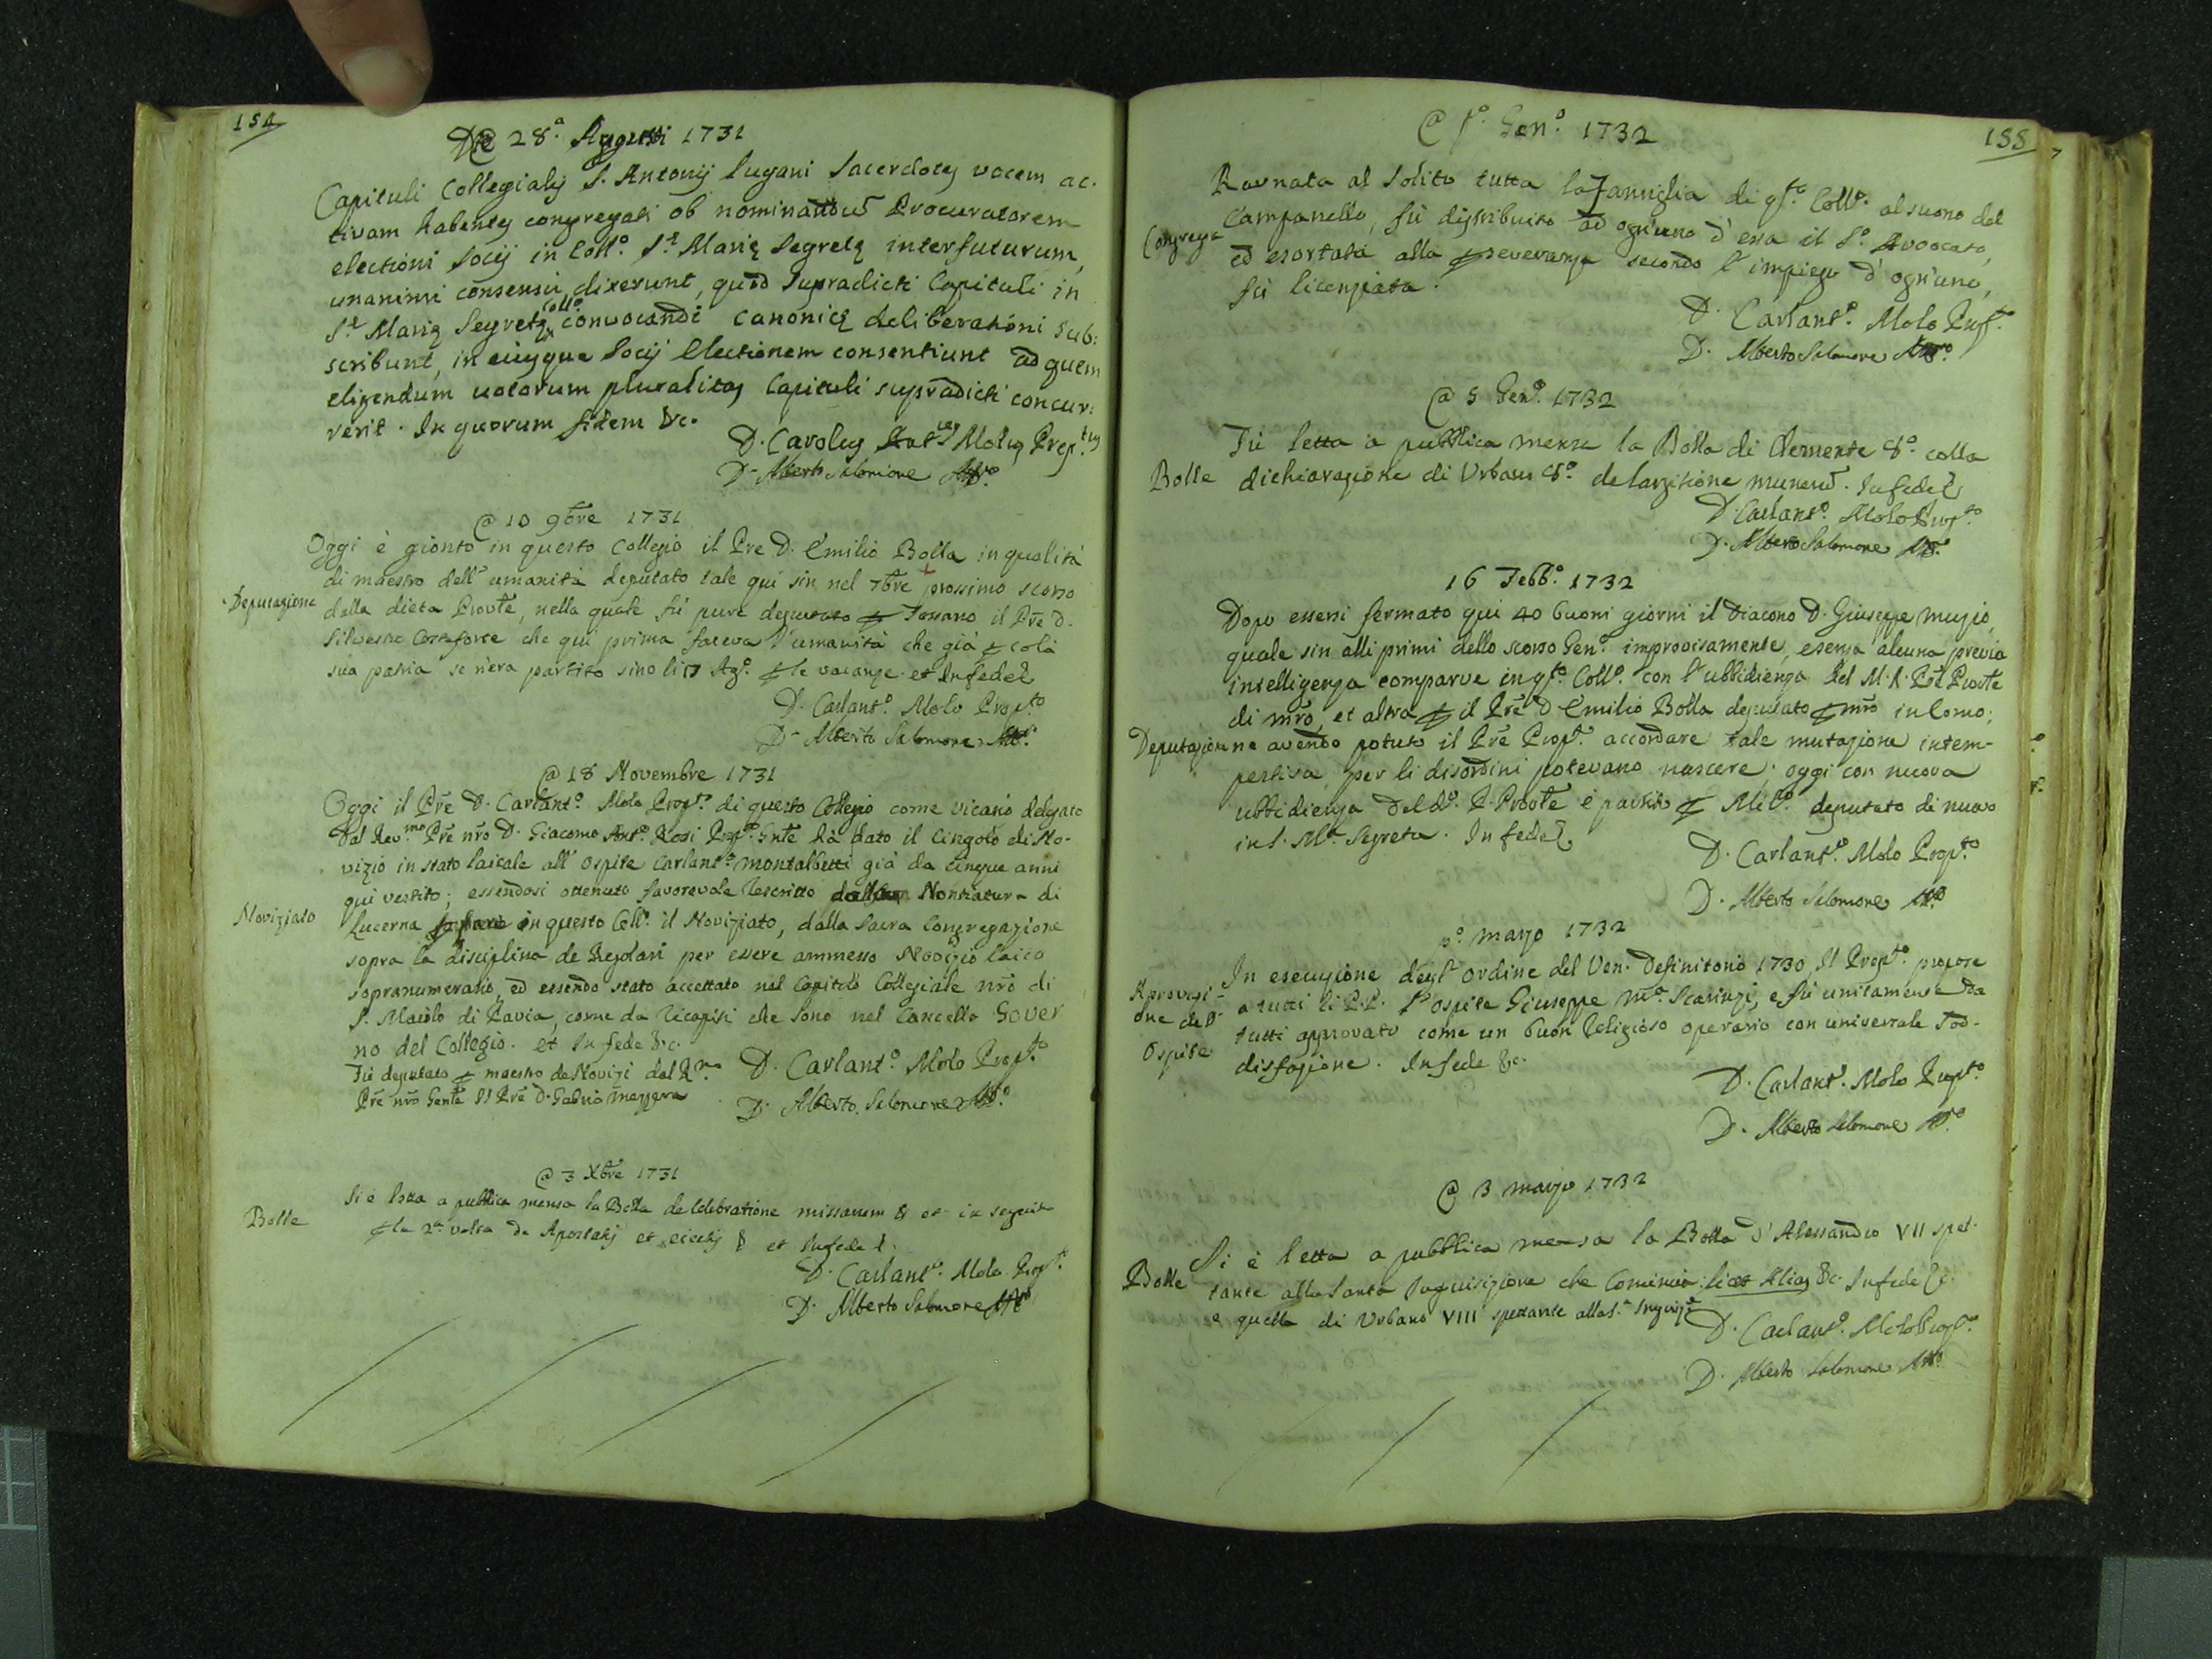 154
Die 28.a Augusti 1731
Capituli Collegialis S. Antonij Lugani Sacerdotes vocem ac-
tivam habentes congregati ob nominandum Procuratorem
electioni Socij in Coll.o S.ę Marię Segretę interfuturum,
unanimi consensu dixerunt, quod supradicti Capituli in
Coll.o
S.ę Marię Segretę convocandi canonicę deliberationi sub:
scribunt, in eiusque Socij Electionem consentiunt ad quem
eligendum votorum pluralitas Capituli supradicti concur:
rerit. In quorum fidem &c.
D. Carolus Ant.us Molus Prep.tus
D. Alberto Salomone Att.o
@ 10 9bre 1731
Oggi è gionto in questo Collegio il Pre D. Emilio Bolla in qualità
di maestro dell'umanità deputato tale qui sin nel 7bre prossimo scorso
Deputazione
dalla dieta Provle, nella quale fù pure deputato p Fossano il Pre D.
Silvestro Cortaforce che qui prima faceva l'umanità che già p colà
sua patria se n'era partito sino li 17 Ag.o p le vacanze. et In fede
D. Carlant.o Molo Prop.to
D. Alberto Salomone Att.o
@ 18 Novembre 1731
Oggi il Pre D. Carlant.o Molo Prop.to di questo Collegio come vicario delegato
dal Rev.mo Pre nro D. Giacomo Ant.o Rosi Prep.o Gnle hà dato il cingolo di No-
vizio in stato laicale all'ospite Carlant.o Montalbetti già da cinque anni
qui vestito; essendosi ottenuto favorevole rescritto dalla Nontiatura di
Noviziato
Lucerna in questo Coll.o il Noviziato, dalla Sacra Congregazione
sopra la disciplina de Regolari per essere ammesso Novizio laico
sopranumerario, ed essendo stato accettato nel Capitolo Collegiale nro di
S. Maiolo di Pavia, come da ricapiti che sono nel Cancello Gover
no del Collegio. et In fede &c.
Fù deputato p maestro de Novizi dal R.mo
Pre nro Gente Il Pre D. Gabrio Mezzera
D. Carlant.o Molo Prop.to
D. Alberto Salomone Att.o
@ 3 Xbre 1731
Si è letta a pubblica mensa la Bolla de Celebratione missarum & et in seguito
Bolle
p la 2.a volta de Apostatis et eiectis & et In fede &.
D. Carlant.o Molo Prop.to
D. Alberto Salomone Att.o
155
@ p.o Gen.o 1732
Raunata al solito tutta la Famiglia di q.to Coll.o al suono del
Congrega
Campanello, fù distribuito ad ogn'uno d'essa il S.o Avvocato,
ed esortata alla pseveranza secondo l'impiego d'ogn'uno,
fù licenziata.
D. Carlant.o Molo Prop.to
D. Alberto Salomone Att.o
@ 5 Gen.o 1732
Fù letta a pubblica mensa la Bolla di Clemente 8.o colla
Bolle
dichiarazione di Urbano 8.o de largitione munerum. In fede
D. Carlant.o Molo Prop.to
D. Alberto Salomone Att.o
16 Febb.o 1732
Dopo essersi fermato qui 40 buoni giorni il Diacono D. Giuseppe Muzio,
quale sin alli primi dello scorso Gen.o improvisamente, e senza alcuna previa
intelligenza comparve in q.to Coll.o con l'ubbidienza del M.R. Pre Provle
di mro, et altra p il Pre D. Emilio Bolla deputato p mro in Como;
Deputazione
ne avendo potuto il Pre Prop.to accordare tale mutazione intem-
pestiva, per li disordini potevano nascere; oggi con nuova
ubbidienza del d.o P. Provle è partito p Mil.o deputato di nuovo
in S. M.a Segreta. In fede
D. Carlant.o Molo Prop.to
D. Alberto Salomone Att.o
p.o marzo 1732
In esecuzione degl'ordine del Ven. Definitorio 1730, Il Prep.to propose
Aprovazi-
one dell'
Ospite
a tutti li P.P. l'ospite Giuseppe M.a Scarinzi, e fù unitamente da
tutti approvato come un buon Religioso operario con universale sod-
disfazione. In fede &c.
D. Carlant.o Molo Prop.to
D. Alberto Salomone Att.o
@ 3 marzo 1732
Si è letta a pubblica mensa la Bolla d'Alessandro VII spet-
Bolle
tante alla Santa Inquisizione che Comincia: licet Alias &c. In fede &c.
e quella di Urbano VIII spettante alla S.a Inquiz.e
D. Carlant.o Molo Prop.to
D. Alberto Salomone Att.o